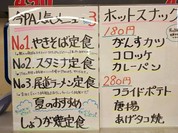 当PA人気メニュー
No.1 やきそば定食
No.2 スタミナ定食
No.3 尾道ラーメン定食
夏のおすすめ
しょうが焼定食
ホットスナック
180円
がんすカツ
コロッケ
カレーパン
280円
フライドポテト
唐揚
あげタコ焼